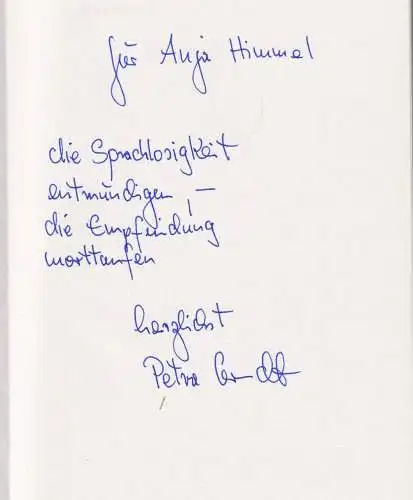 für Anja Himmel
die Sprachlosigkeit
entmündigen, –
die Empfindung
worttaufen
herzlichst
Petra